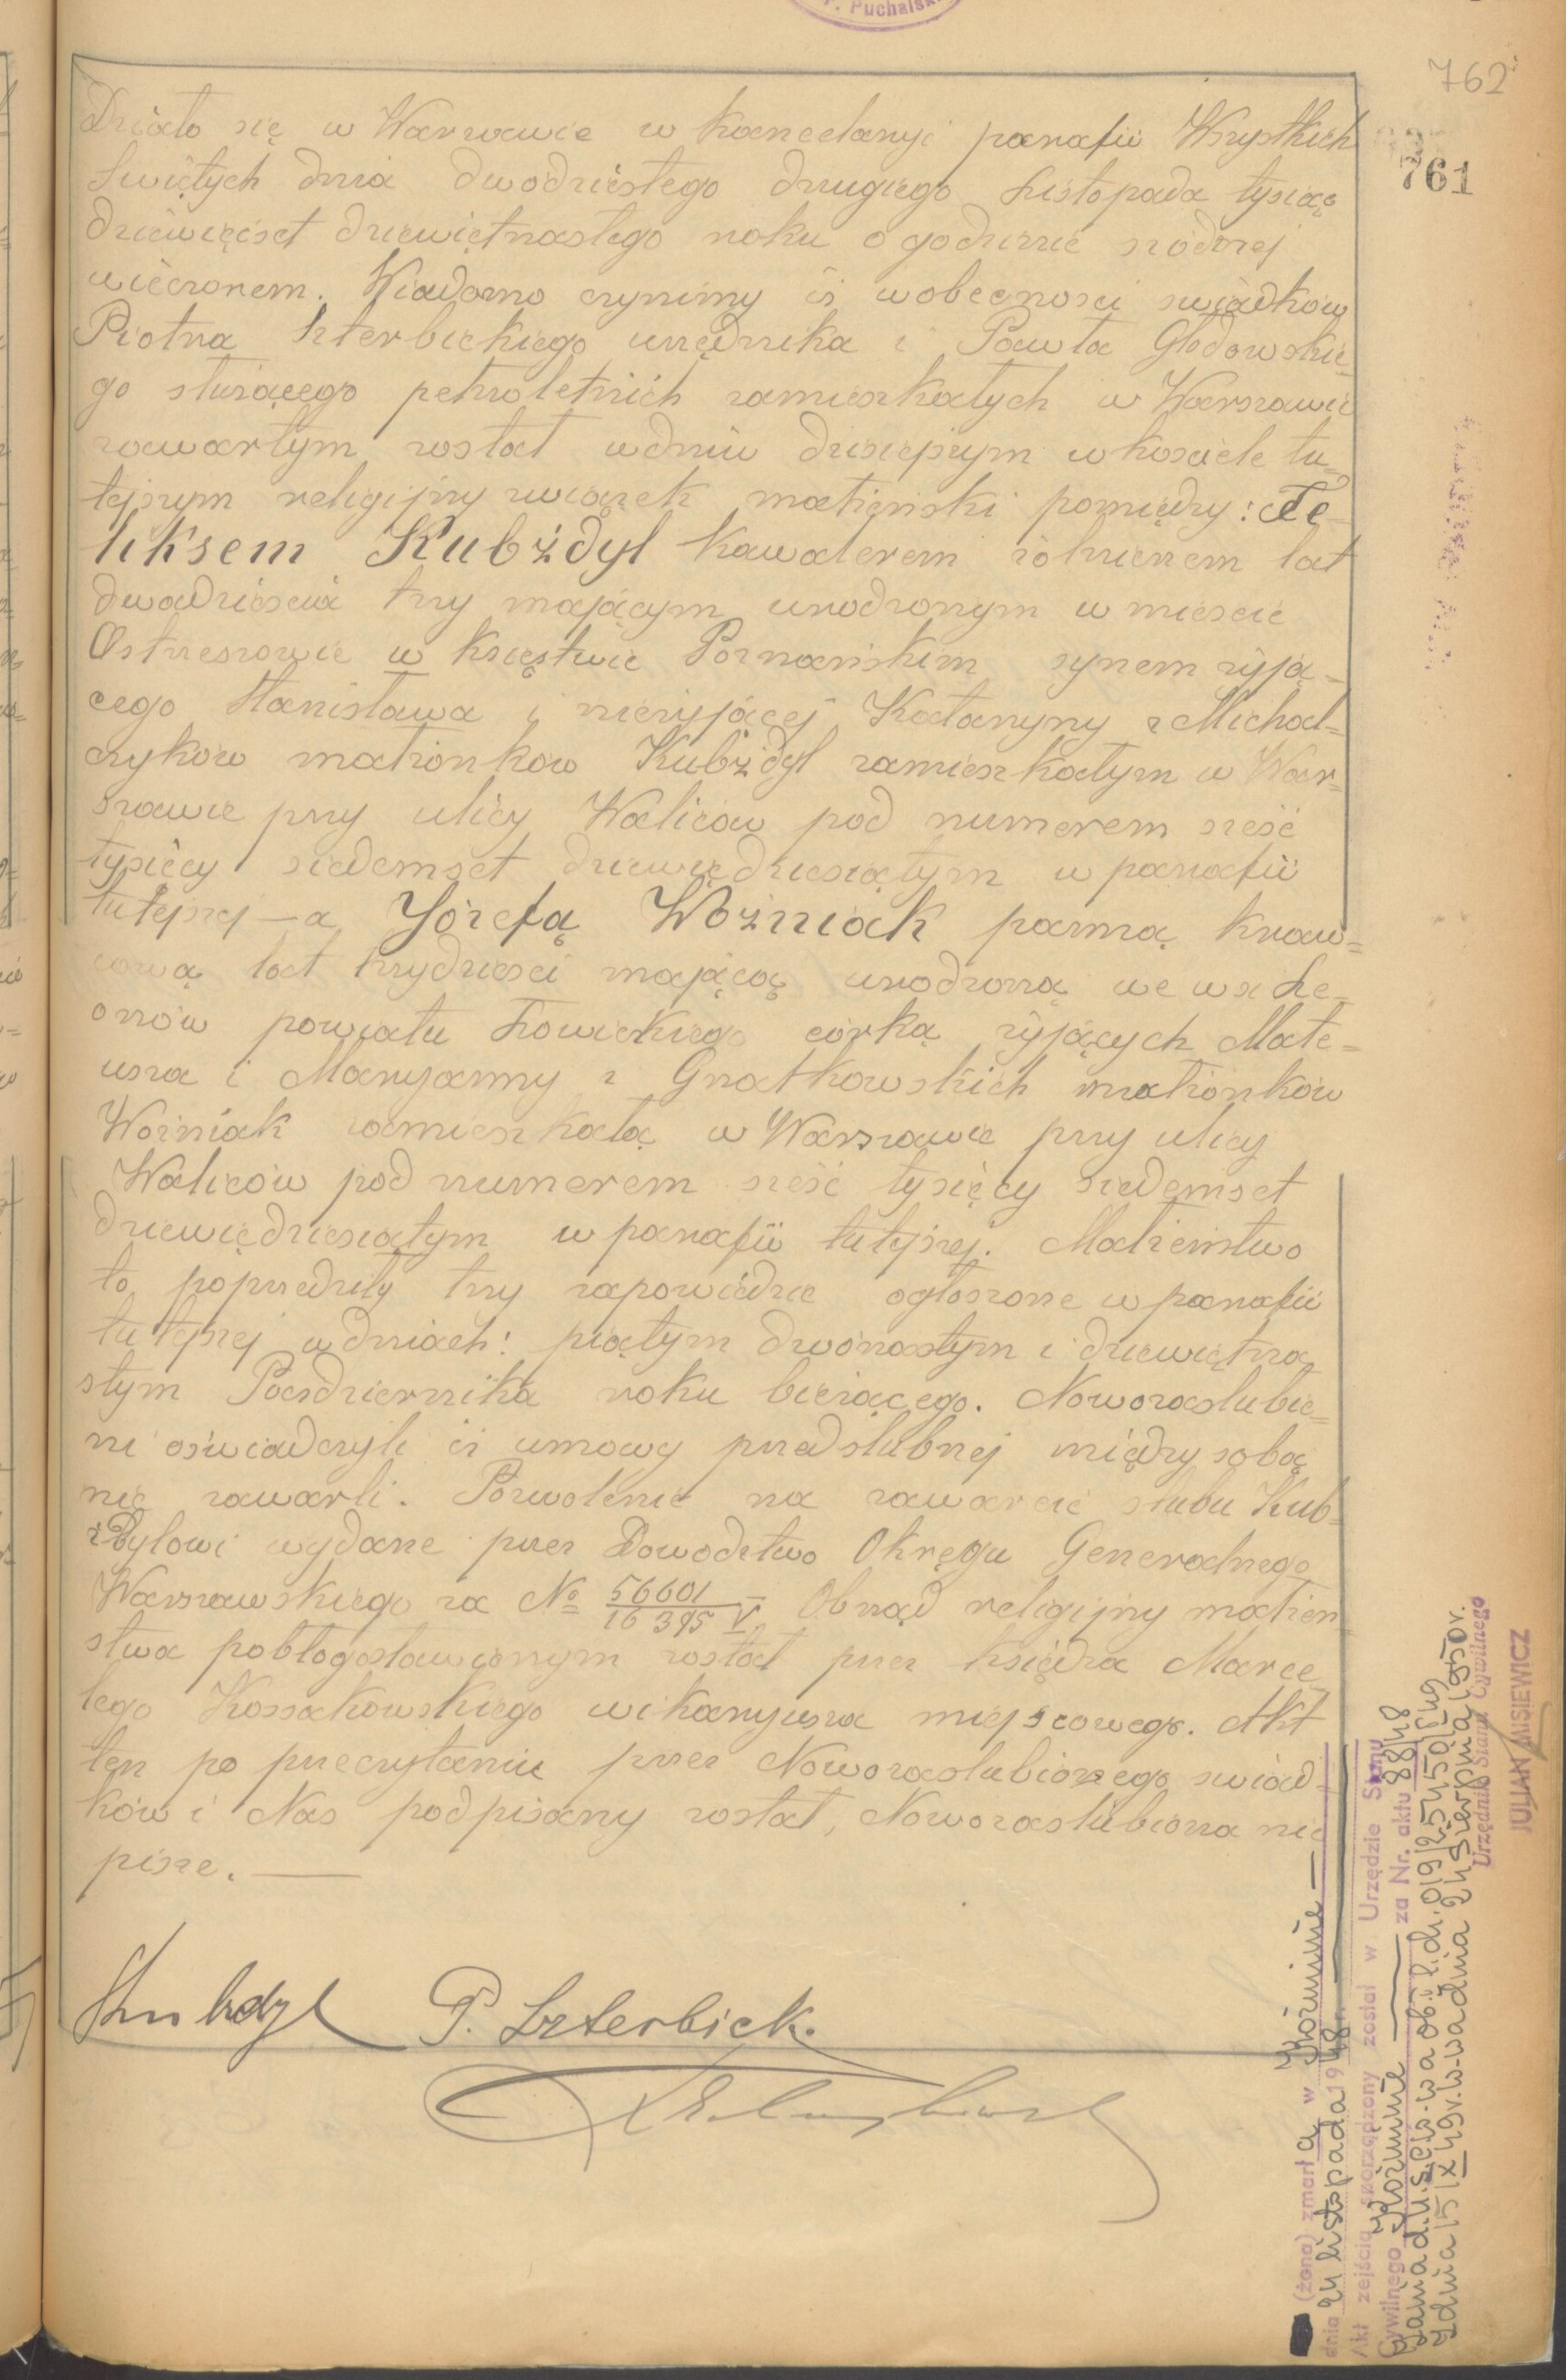 P. Puchalski
762
761
Działo się w Warszawie w kancelaryi parafii Wszystkich
Świętych dnia dwodziestego drugiego Listopada tysiąc
dziewięćset dziewiętnastego roku o godzinie siódmej
wieczorem. Wiadomo czynimy iż wobecności świadków
Piotra Szterbickiego urzędnika i Pawła Głodowskie-
go służącego pełnoletnich zamieszkałych w Warszawie
zawartym został wdniu dzisiejszym w kościele tu-
tejszym religijny związek małżeński pomiędzy: Fe-
liksem Kubżdyl kawalerem żołnierzem lat
dwadzieścia trzy mającym urodzonym w mieście
Ostrzeszowie w Księstwie Poznańskim synem żyją-
cego Stanisława i nieżyjącej Katarzyny z Michal-
czyków małżonków Kubżdyl zamieszkałym w War-
szawie przy ulicy Waliców pod numerem sześć
tysięcy siedemset dziewiędziesiątym w parafii
tutejszej — a Józefą Woźniak panną kraw-
cową lat trzydzieści mającą urodzoną we wsi Le-
onów powiatu Łowickiego córką żyjących Mate-
usza i Maryanny z Gnatkowskich małżonków
Woźniak zamieszkałą w Warszawie przy ulicy
Waliców pod numerem sześć tysięcy siedemset
dziewiędziesiątym w parafii tutejszej. Małżeństwo
to poprzedziły trzy zapowiedzie ogłoszone w parafii
tutejszej w dniach: piątym dwónastym i dziewiętna
stym Października roku bieżącego. Nowozaslubie-
ni oświadczyli iż umowy przedślubnej między sobą
nie zawarli. Pozwolenie na zawarcie ślubu Kub-
żdylowi wydane przez Dowodztwo Okręgu Generalnego
Warszawskiego za № 56601/16395 V. Obrząd religijny małżeń
stwa pobłogosławionym został przez księdza Marce
lego Kossakowskiego wikaryusza miejscowego. Akt
ten po przeczytaniu przez Nowozaslubionego świad-
ków i Nas podpisany został, Nowozaslubiona nie
pisze. —
Kubżdyl P. Szterbick.
(żona) zmarła w Koźminie —
dnia 24 listopada 1948 r.
Akt zejścia sporządzony został w Urzędzie Stanu
Cywilnego Koźminie — za Nr. aktu 88/48
Urzędnik Stanu Cywilnego
JULIAN MISIEWICZ